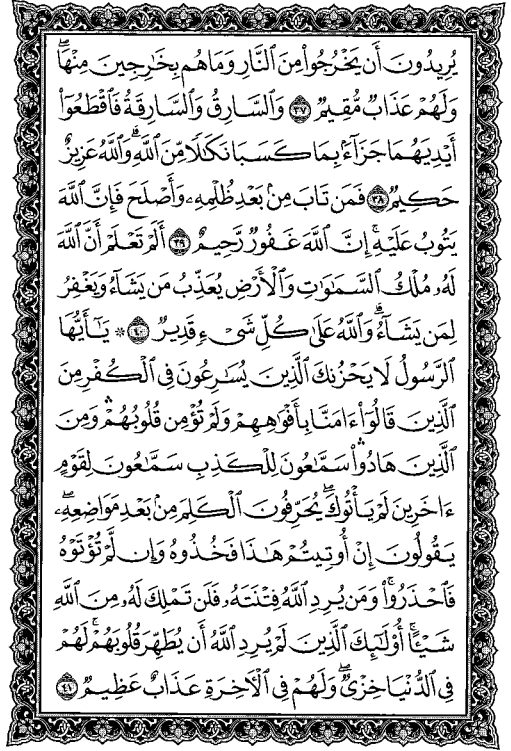 يُرِيدُونَ أَن يَخْرُجُوا۟ مِنَ ٱلنَّارِ وَمَا هُم بِخَـٰرِجِينَ مِنْهَا ۖ
وَلَهُمْ عَذَابٌ مُّقِيمٌ ٣٧ وَٱلسَّارِقُ وَٱلسَّارِقَةُ فَٱقْطَعُوٓا۟
أَيْدِيَهُمَا جَزَآءًۢ بِمَا كَسَبَا نَكَـٰلًا مِّنَ ٱللَّهِ ۗ وَٱللَّهُ عَزِيزٌ
حَكِيمٌ ٣٨ فَمَن تَابَ مِنۢ بَعْدِ ظُلْمِهِۦ وَأَصْلَحَ فَإِنَّ ٱللَّهَ
يَتُوبُ عَلَيْهِ ۗ إِنَّ ٱللَّهَ غَفُورٌ رَّحِيمٌ ٣٩ أَلَمْ تَعْلَمْ أَنَّ ٱللَّهَ
لَهُۥ مُلْكُ ٱلسَّمَـٰوَٰتِ وَٱلْأَرْضِ يُعَذِّبُ مَن يَشَآءُ وَيَغْفِرُ
لِمَن يَشَآءُ ۗ وَٱللَّهُ عَلَىٰ كُلِّ شَىْءٍ قَدِيرٌ ٤٠ * يَـٰٓأَيُّهَا
ٱلرَّسُولُ لَا يَحْزُنكَ ٱلَّذِينَ يُسَـٰرِعُونَ فِى ٱلْكُفْرِ مِنَ
ٱلَّذِينَ قَالُوٓا۟ ءَامَنَّا بِأَفْوَٰهِهِمْ وَلَمْ تُؤْمِن قُلُوبُهُمْ ۛ وَمِنَ
ٱلَّذِينَ هَادُوا۟ ۛ سَمَّـٰعُونَ لِلْكَذِبِ سَمَّـٰعُونَ لِقَوْمٍ
ءَاخَرِينَ لَمْ يَأْتُوكَ ۖ يُحَرِّفُونَ ٱلْكَلِمَ مِنۢ بَعْدِ مَوَاضِعِهِۦ ۖ
يَقُولُونَ إِنْ أُوتِيتُمْ هَـٰذَا فَخُذُوهُ وَإِن لَّمْ تُؤْتَوْهُ
فَٱحْذَرُوا۟ ۚ وَمَن يُرِدِ ٱللَّهُ فِتْنَتَهُۥ فَلَن تَمْلِكَ لَهُۥ مِنَ ٱللَّهِ
شَيْـًٔا ۚ أُو۟لَـٰٓئِكَ ٱلَّذِينَ لَمْ يُرِدِ ٱللَّهُ أَن يُطَهِّرَ قُلُوبَهُمْ ۚ لَهُمْ
فِى ٱلدُّنْيَا خِزْىٌ ۖ وَلَهُمْ فِى ٱلْـَٔاخِرَةِ عَذَابٌ عَظِيمٌ ٤١